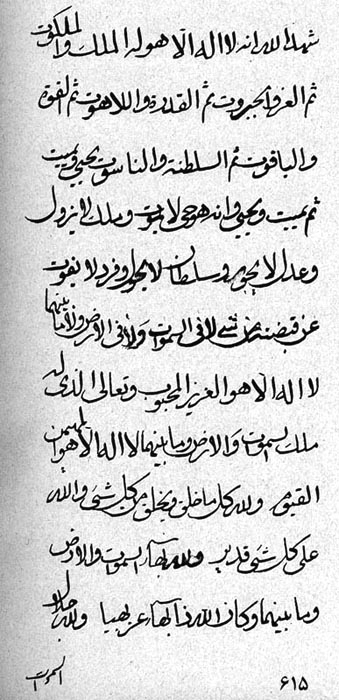 شهد الله انه لا اله الا هو له الملك والملكوت
ثم العز والجبروت ثم القدرة واللاهوت ثم القوة
والياقوت ثم السلطنة والناسوت يحيي ويميت
ثم يميت ويحيي وانه هو حي لا يموت وملك لا يزول
وعدل لا يجور وسلطان لا يحول وفرد لا يفوت
عن قبضته من شيء لا في السموات ولا في الارض ولا ما بينهما
لا اله الا هو العزيز المحبوب وتعالى الذي له
ملك السموات والارض وما بينهما لا اله الا هو المهيمن
القيوم ولله كل ما خلق ويخلق من كل شيء والله
على كل شيء قدير ولله بهاء السموات والارض
وما بينهما وكان الله ذا بهاء بهيا ولله جلال
السموات
۶۱۵